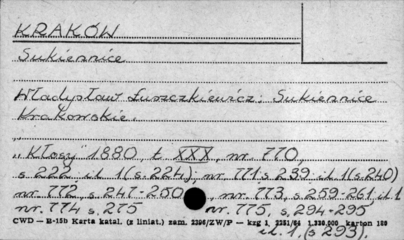 KRAKÓW
Sukiennice.
Władysław Łuszczkiewicz: Sukiennice
Krakowskie.
"Kłosy" 1880, t. XXX, nr. 770,
s. 222 il. 1 (s. 224), nr. 771 s. 239 il. 1 (s. 240)
nr. 772, s. 247-250 nr. 773, s. 259-261, il. 1
nr. 774 s. 275 nr. 775, s. 294-295
CWD — E-15b Karta katal. (z liniat.) zam. 2396/ZW/P — krg 1, 2351/64 1.330.000, karton 180
il. 1, (s 293),